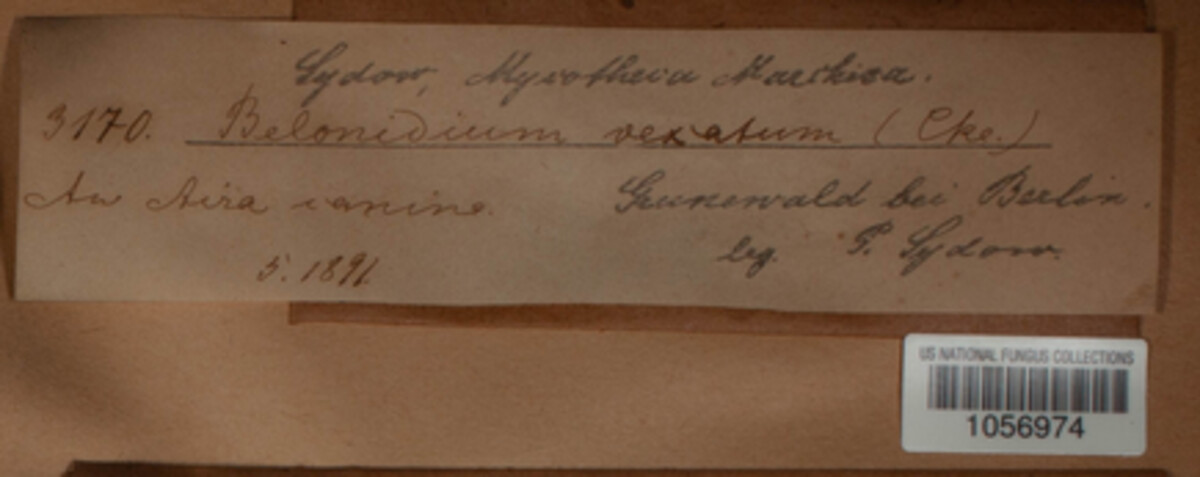 Sydow, Mycotheca Marchica.
3170. Belonidium vexatum (Cke.)
An Aira canina.
Grunewald bei Berlin.
5. 1891.
leg. P. Sydow.
US NATIONAL FUNGUS COLLECTIONS
1056974